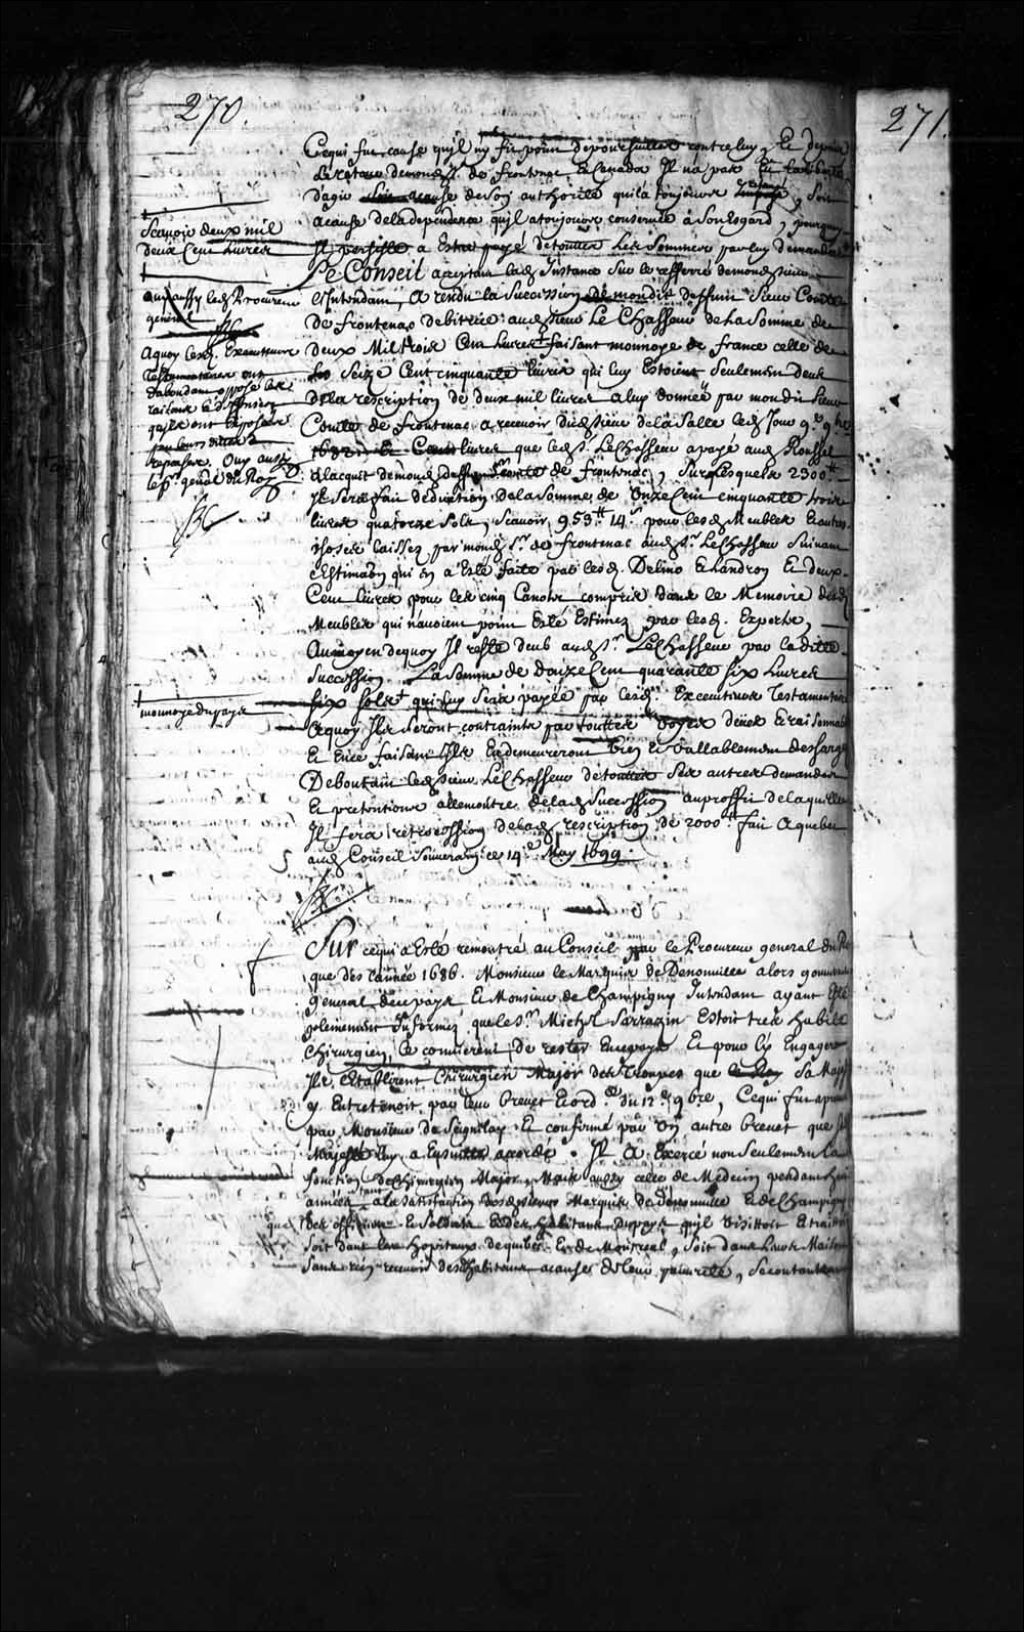 270.
271.
Ce qui fut cause quil ny fit point de poursuittes contre luy, Et depuis
Le retour de mondt Sr. de frontenac En Canada Il n'a pas Eu la liberté
d'agir de son authorité quil a toujours, Soit
a cause de la dependence quil a toujours conservée à Son Esgard, pourquoy
Il persiste a Estre payé de touttes Les Sommes par luy demandées
Scavoir deux mil
deux Cent Livres
Le Conseil
l'Intendant, A rendu la Succession de mondit deffunt Sieur Comte
De frontenac debitrice audt Sieur Le Chasseur de La Somme de
Deux Mil trois Cent Livres faisant monnoye de france celle de
Seize Cent cinquante livres qui luy Estoient Seulement deub
De la rescription de deux mil livres a luy donnée par mondit Sieur
Comte de frontenac a recevoir du dt Sieur de la Salle led. Jour 9e. 9bre
1682 livres que led. Sr. Le Chasseur a payé aud. Roussel
a l'acquit de mond. deffunt Sr Comte de frontenac, Sur lesquels 2300tt
Il Sera fait deduction de la Somme de Onze Cent cinquante trois
livres quatorze Sols, Scavoir 953tt 14s pour lesd. Meubles Et autres
choses laissez par mond. Sr. de frontenac aud. Sr. Le Chasseur Suivant
l'Estimaõn qui en a Esté faite par lesd. Delino Et Landron Et deux
Cent livres pour les cinq Canots compris dans le Memoire desd.
Meubles qui n'avoient point Esté Estimez par lesd. Experts,
Au moyen de quoy Il reste deub aud. Sr. Le Chasseur par la ditte
Succession La Somme de Douze Cent quarante Six Livres
Six sols qui luy Sera payée par lesd. Executeurs Testamentaires
A quoy Ils Seront contraints par touttes Voyes deues Et raisonnables
Et Ce faisant Ils En demeureront bien Et vallablement deschargez
Deboutant led. Sieur Le Chasseur de touttes Ses autres demandes
Et pretentions allencontre de lad. Succession au proffit de laquelle
Il fera retrocession de lad. rescription de 2000tt fait A quebec
aud. Conseil Souverain ce 14e. May 1699.
Ouy aussy led. Procureur
general
A quoy lesd. Executeurs
Testamentaires ont
d'abondant opposé les
raisons & deffenses
qu'ils ont Exposées
par leurs dittes
reponses. Ouy aussy
le Pr. genal du Roy
monnoye du pays
Sur ce qui a Esté remontré au Conseil par le Procureur general du Roy
que des l'année 1686. Monsieur le Marquis de Denonville alors gouverneur
general de ce pays Et Monsieur de Champigny Intendant ayant Esté
pleinement Informez que le Sr. Michel Sarrazin Estoit tres habile
Chirurgien, le convierent de rester En ce pays Et pour ly Engager
Ils l'Etablirent Chirurgien Major des Troupes que Sa Majté
y Entretenoit par leur brevet Et ord.ce du 12e. 9bre, Ce qui fut aprouvé
par Monsieur de Seignelay Et confirmé par Un autre brevet que Sa
Majesté luy a Ensuitte accordé. Il A Exercé non Seulement la
fonction de Chirurgien Major Mais aussy celle de Medecin pendant huit
années a la Satisfaction desd. Sieurs Marquis de Denonville Et de Champigny
des officiers Et Soldats Et des habitans Du pays quil Visittoit Et traittoit
Soit dans les hopitaux de quebec Et de Montreal, Soit dans Leurs Maisons
Sans rien recevoir des habitans a cause de leur pauvreté, Se contentant